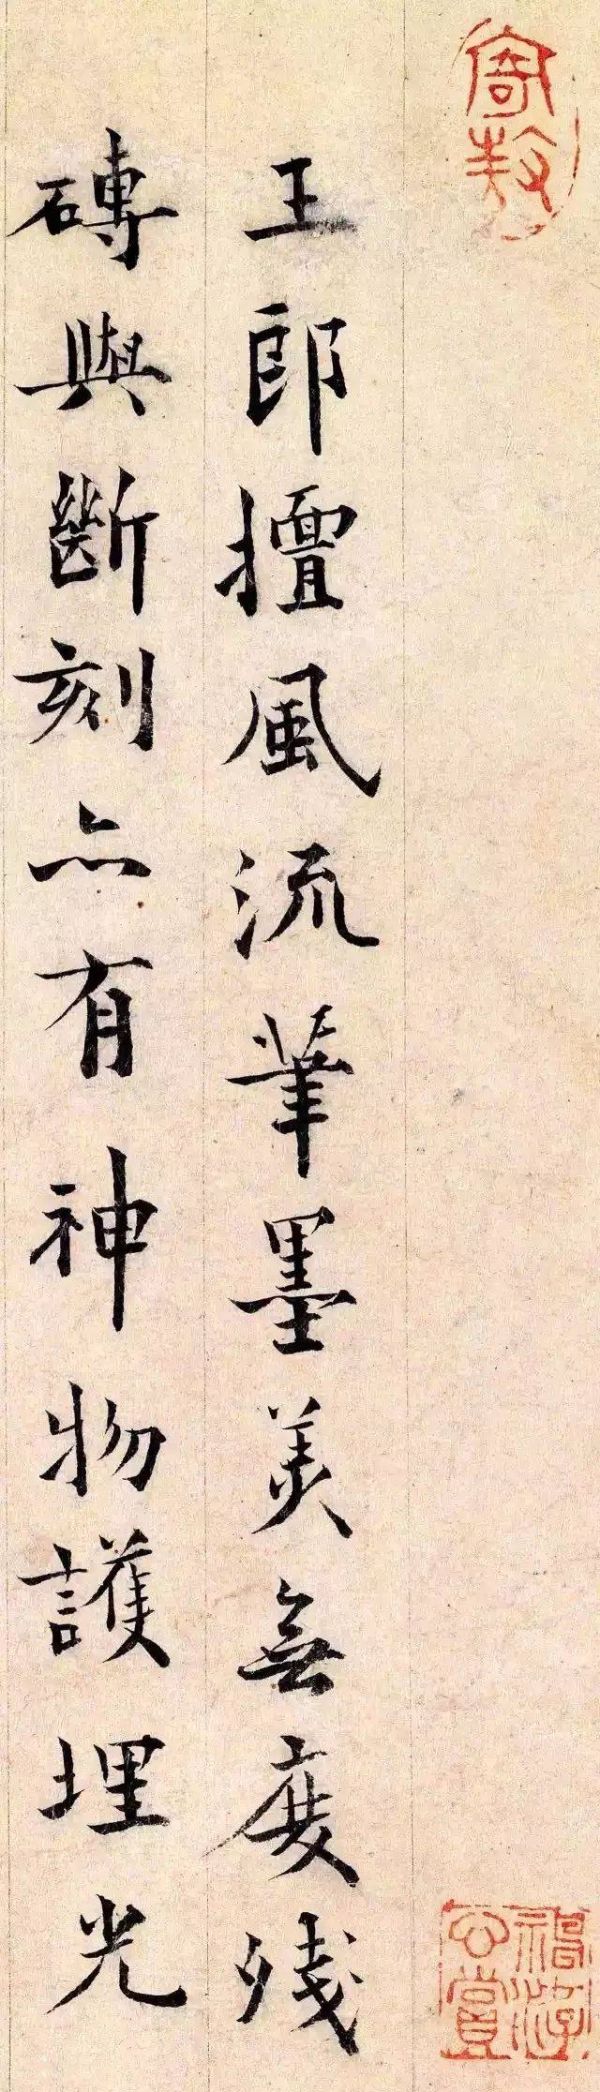 王郎擅風流筆墨美無度殘
磚與斷刻亦有神物護埋光